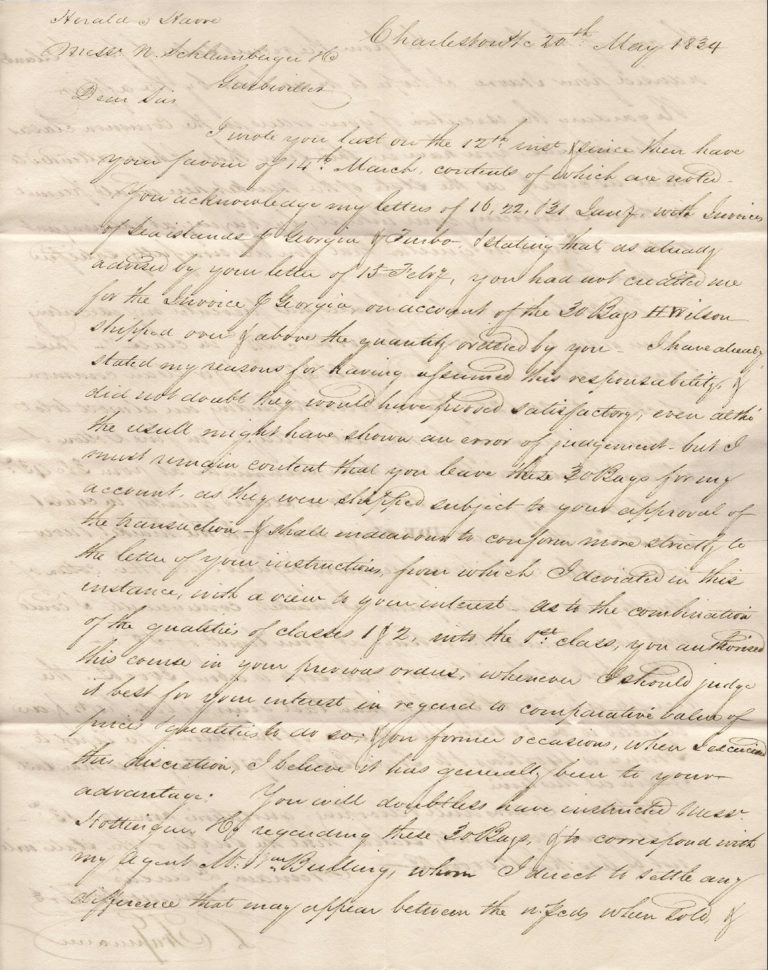 Herald & Havre
Charleston SC 20th May 1834
Messr N. Schlumberger & Co
Guebwiller
Dear Sir
I wrote you last on the 12th inst & since then have
your favour of 14th March, contents of which are noted.
You acknowledge my letters of 16, 22, & 31 Jany. with Invoices
of Sea islands & Georgia & stating that as already
advised by your letter of 15 Feby, you had not credited me
for the Invoice & Georgia, on account of the 30 Bags H Wilson
shipped over & above the quantity ordered by you - I have already
stated my reasons for having assumed this responsability, &
did not doubt they would have proved satisfactory, even altho
the result might have shown an error of judgement - but I
must remain content that you leave these 30 Bags for my
account, as they were shipped subject to your approval of
the transaction - & shall endeavour to conform more strictly to
the letter of your instructions, from which I deviated in this
instance, with a view to your interest - as to the combination
of the qualities of classes 1 & 2, into the 1st class, you authorised
this course in your previous orders, whenever I should judge
it best for your interest in regard to comparative value of
price & qualities to do so, & on former occasions, when I exercised
this discretion, I believe it has generally been to your
advantage. You will doubtless have instructed Messr
Hottinguer & Co regarding these 30 Bags, & to correspond with
my Agent Mr Wm Bulling, whom I direct to settle any
difference that may appear between the nt. pcds when sold, &